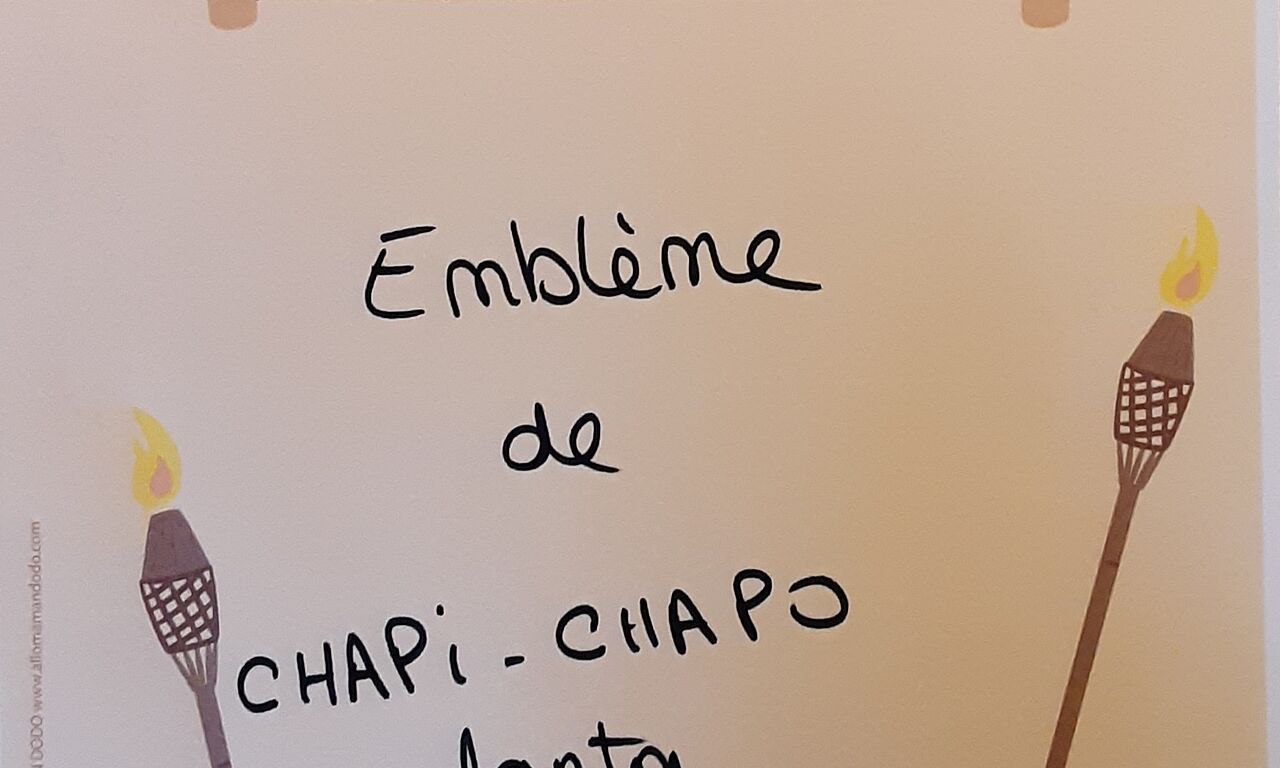 Emblème
de
CHAPi - CHAPO
lanta
DODO www.allomamandodo.com